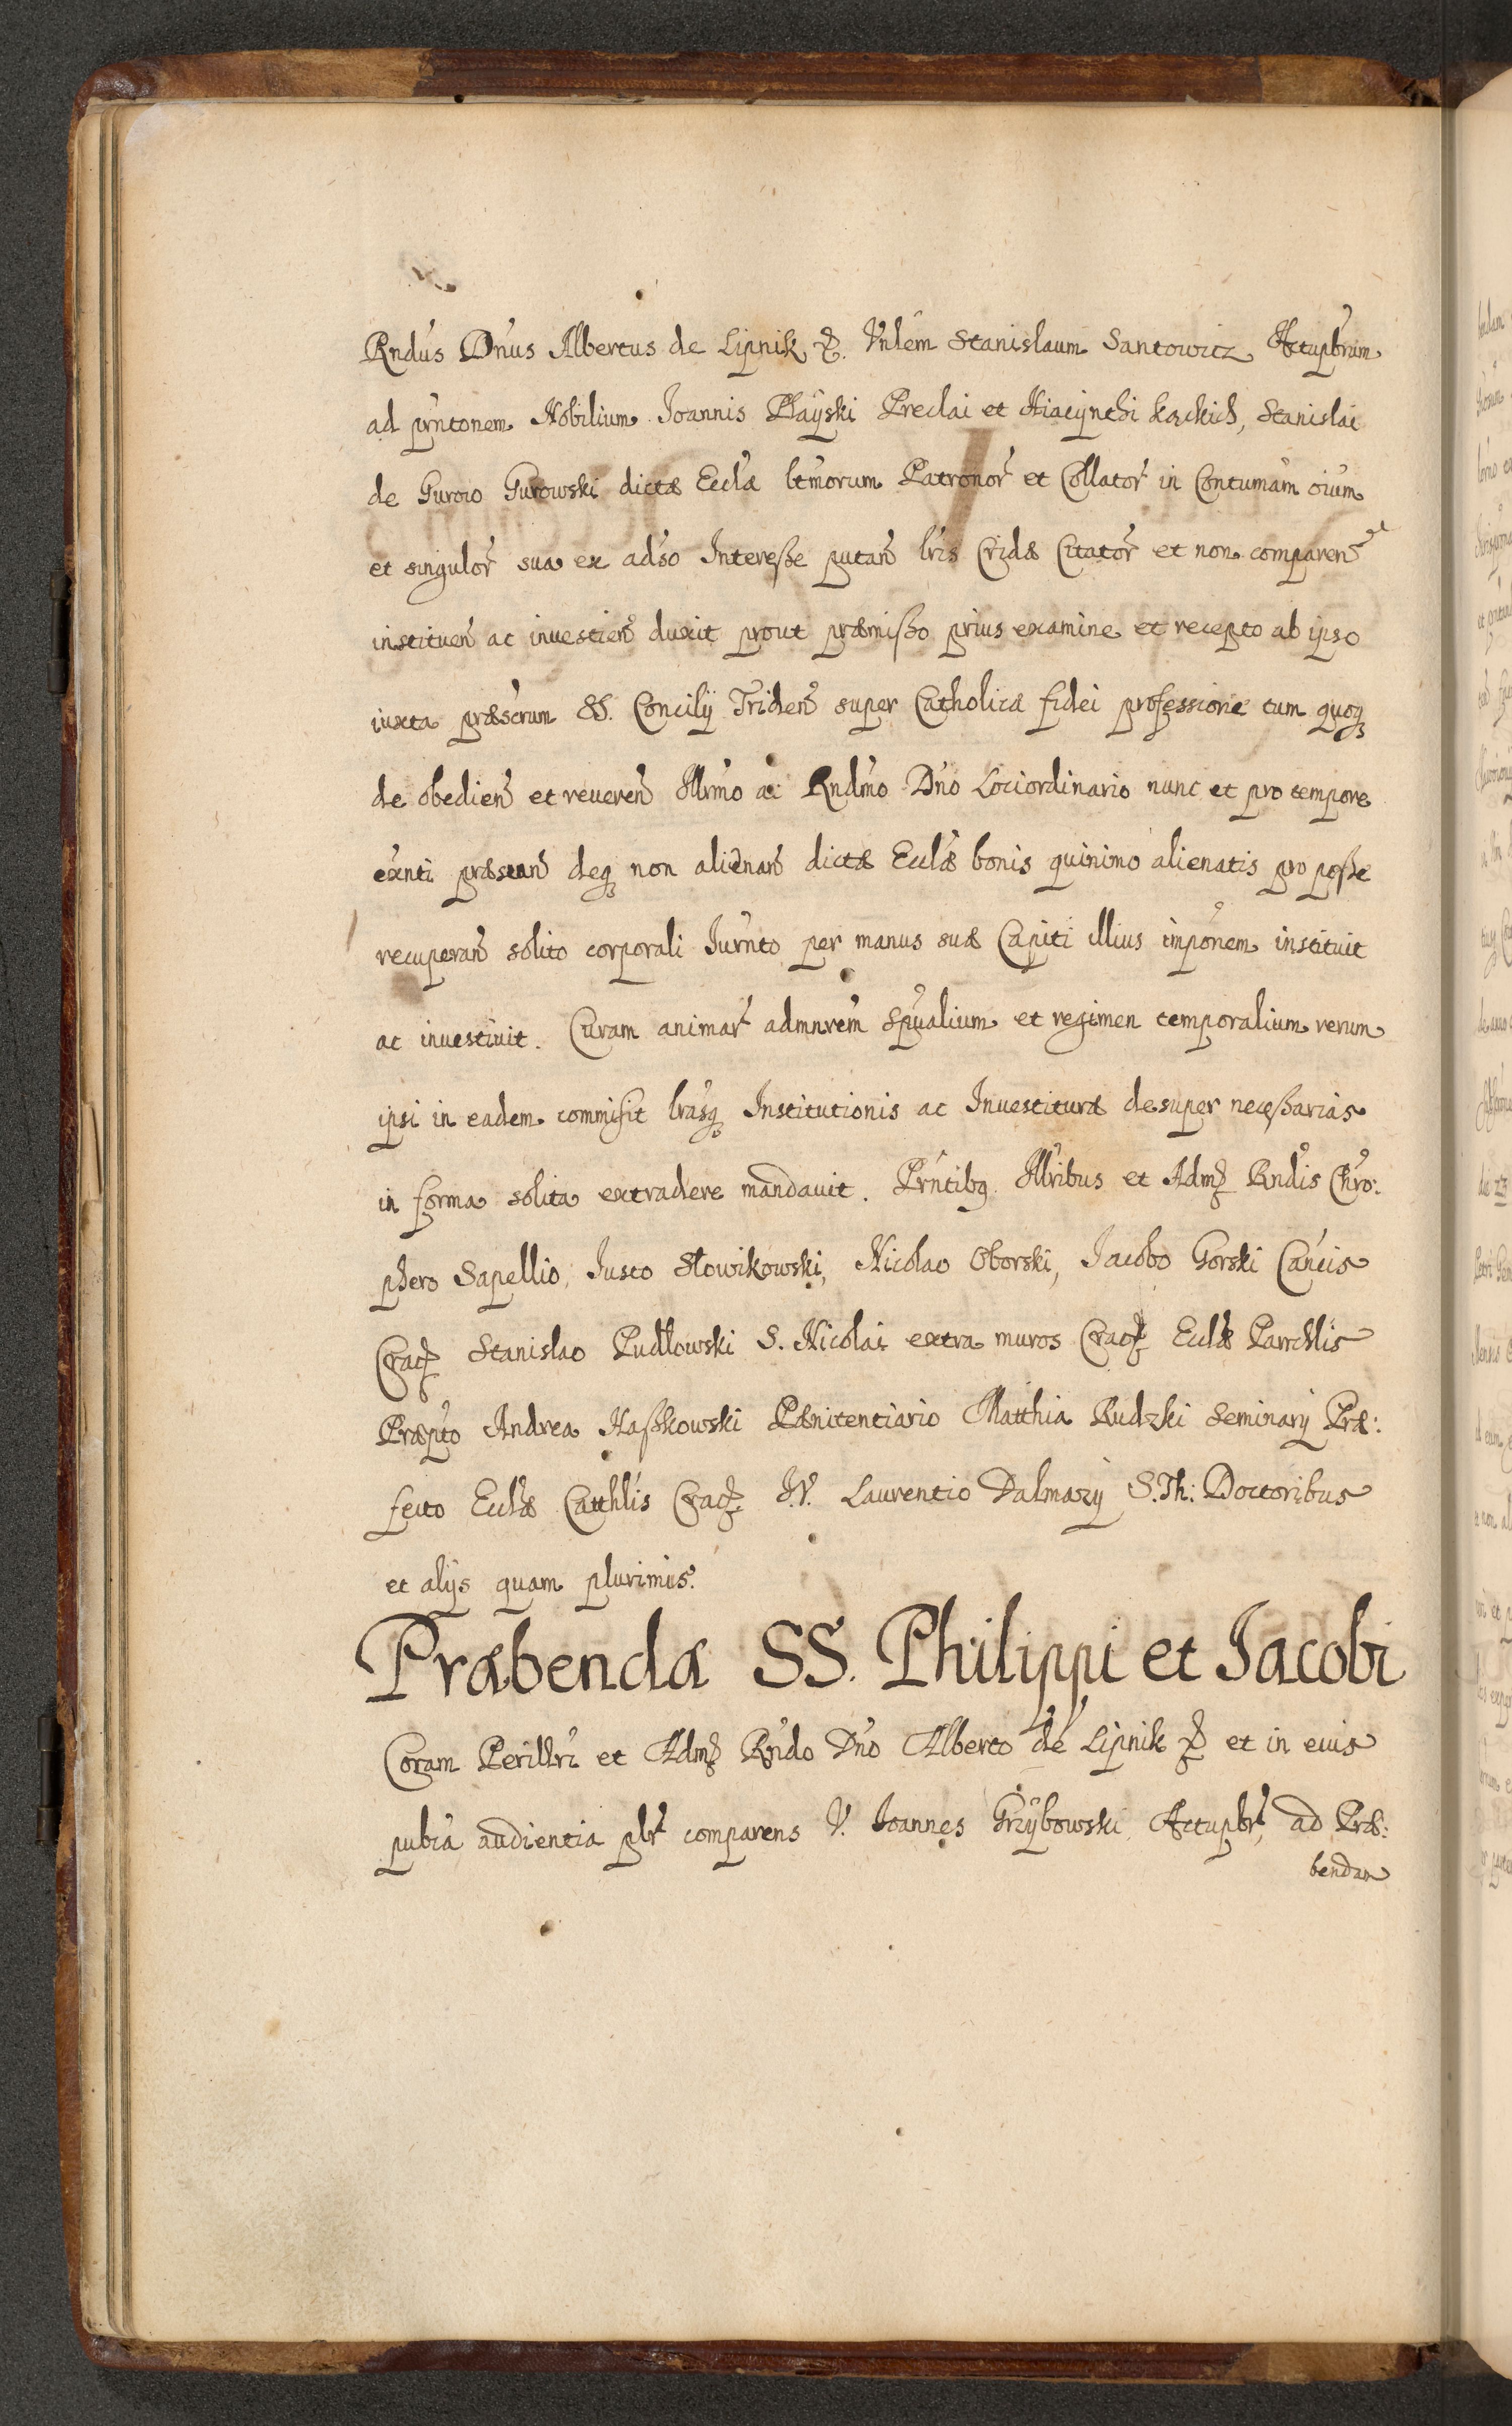 Rndus Dnus Albertus de Lipnik &. Vnlem Stanislaum Santowicz Actupbrum
ad pntonem Nobilium Joannis Playski Preclai et Hiacynthi Kackich, Stanislai
de Gurow Gurowski dictæ Eccla ltmorum Patronor et Collator in Contumam oium
et singulor sua ex adso Interesse putan lris Cridæ Citator et non comparen
instituen ac inuestien duxit prout præmisso prius examine et recepto ab ipso
iuxta præscrum SS. Concilij Triden super Catholica fidei professione tum quoq
de obedien et reueren Illrmo ac Rndmo Dno Lociordinario nunc et pro tempore
exnti præstan deq non alienan dictæ Ecclæ bonis quinimo alienatis pro posse
recuperan solito corporali Iurnto per manus suæ Capiti illius imponem instituit
ac inuestiuit. Curam animar admnrem Spualium et regimen temporalium rerum
ipsi in eadem commisit lrasq Institutionis ac Inuestituræ desuper necessarias
in forma solita extradere mandauit. Prntibq Illribus et Adm Rndis Chro:
phero Sapellio, Iusto Słowikowski, Nicolao Oborski, Jacobo Gorski Cancis
Crac Stanislao Pudłowski S. Nicolai extra muros Crac Ecclæ Parrchlis
Præpto Andrea Haszkowski Pænitentiario Matthia Rudzki Seminarij Præ:
fecto Ecclæ Catthlis Crac I.V. Laurentio Dalmazij S.Th: Doctoribus
et alijs quam plurimis.
Præbenda SS. Philippi et Jacobi
Coram Perillri et Adm Rndo Dno Alberto de Lipnik & et in eius
pubca audientia pbr comparens V. Joannes Grzybowski Actupbr, ad Præ:
bendam